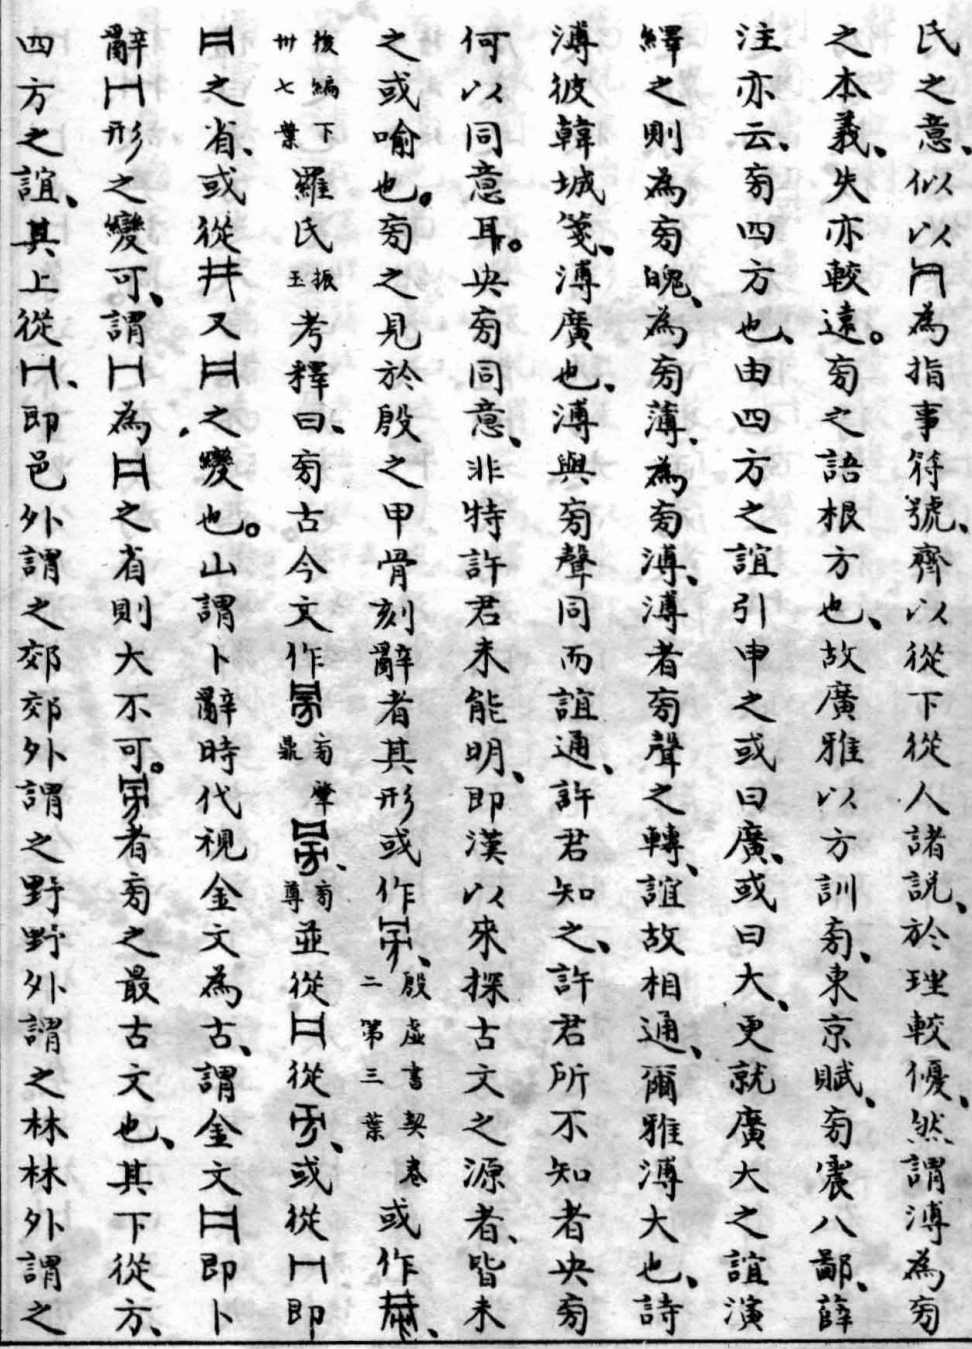 氏之意、似以冂為指事符號、齊以從下從人諸説、於理較優、然謂溥為㫄
之本義、失亦較遠。㫄之語根方也、故廣雅以方訓㫄、東京賦、㫄震八鄙、薛
注亦云、㫄四方也、由四方之誼引申之或曰廣、或曰大、更就廣大之誼演
繹之則為㫄魄、為㫄薄、為㫄溥、溥者㫄聲之轉、誼故相通、爾雅溥大也、詩
溥彼韓城箋、溥廣也、溥與㫄聲同而誼通、許君知之、許君所不知者央㫄
何以同意耳。央㫄同意、非特許君未能明、即漢以來探古文之源者、皆未
之或喻也。㫄之見於殷之甲骨刻辭者其形或作、殷虛書契卷二第三葉或作、
後編下卅七葉羅氏振玉考釋曰、㫄古今文作㫄肇鼎、㫄尊並從從、或從即
之省、或從井又之變也。山謂卜辭時代視金文為古、謂金文即卜
辭形之變可、謂為之省則大不可。者㫄之最古文也、其下從方、
四方之誼、其上從、即邑外謂之郊郊外謂之野野外謂之林林外謂之